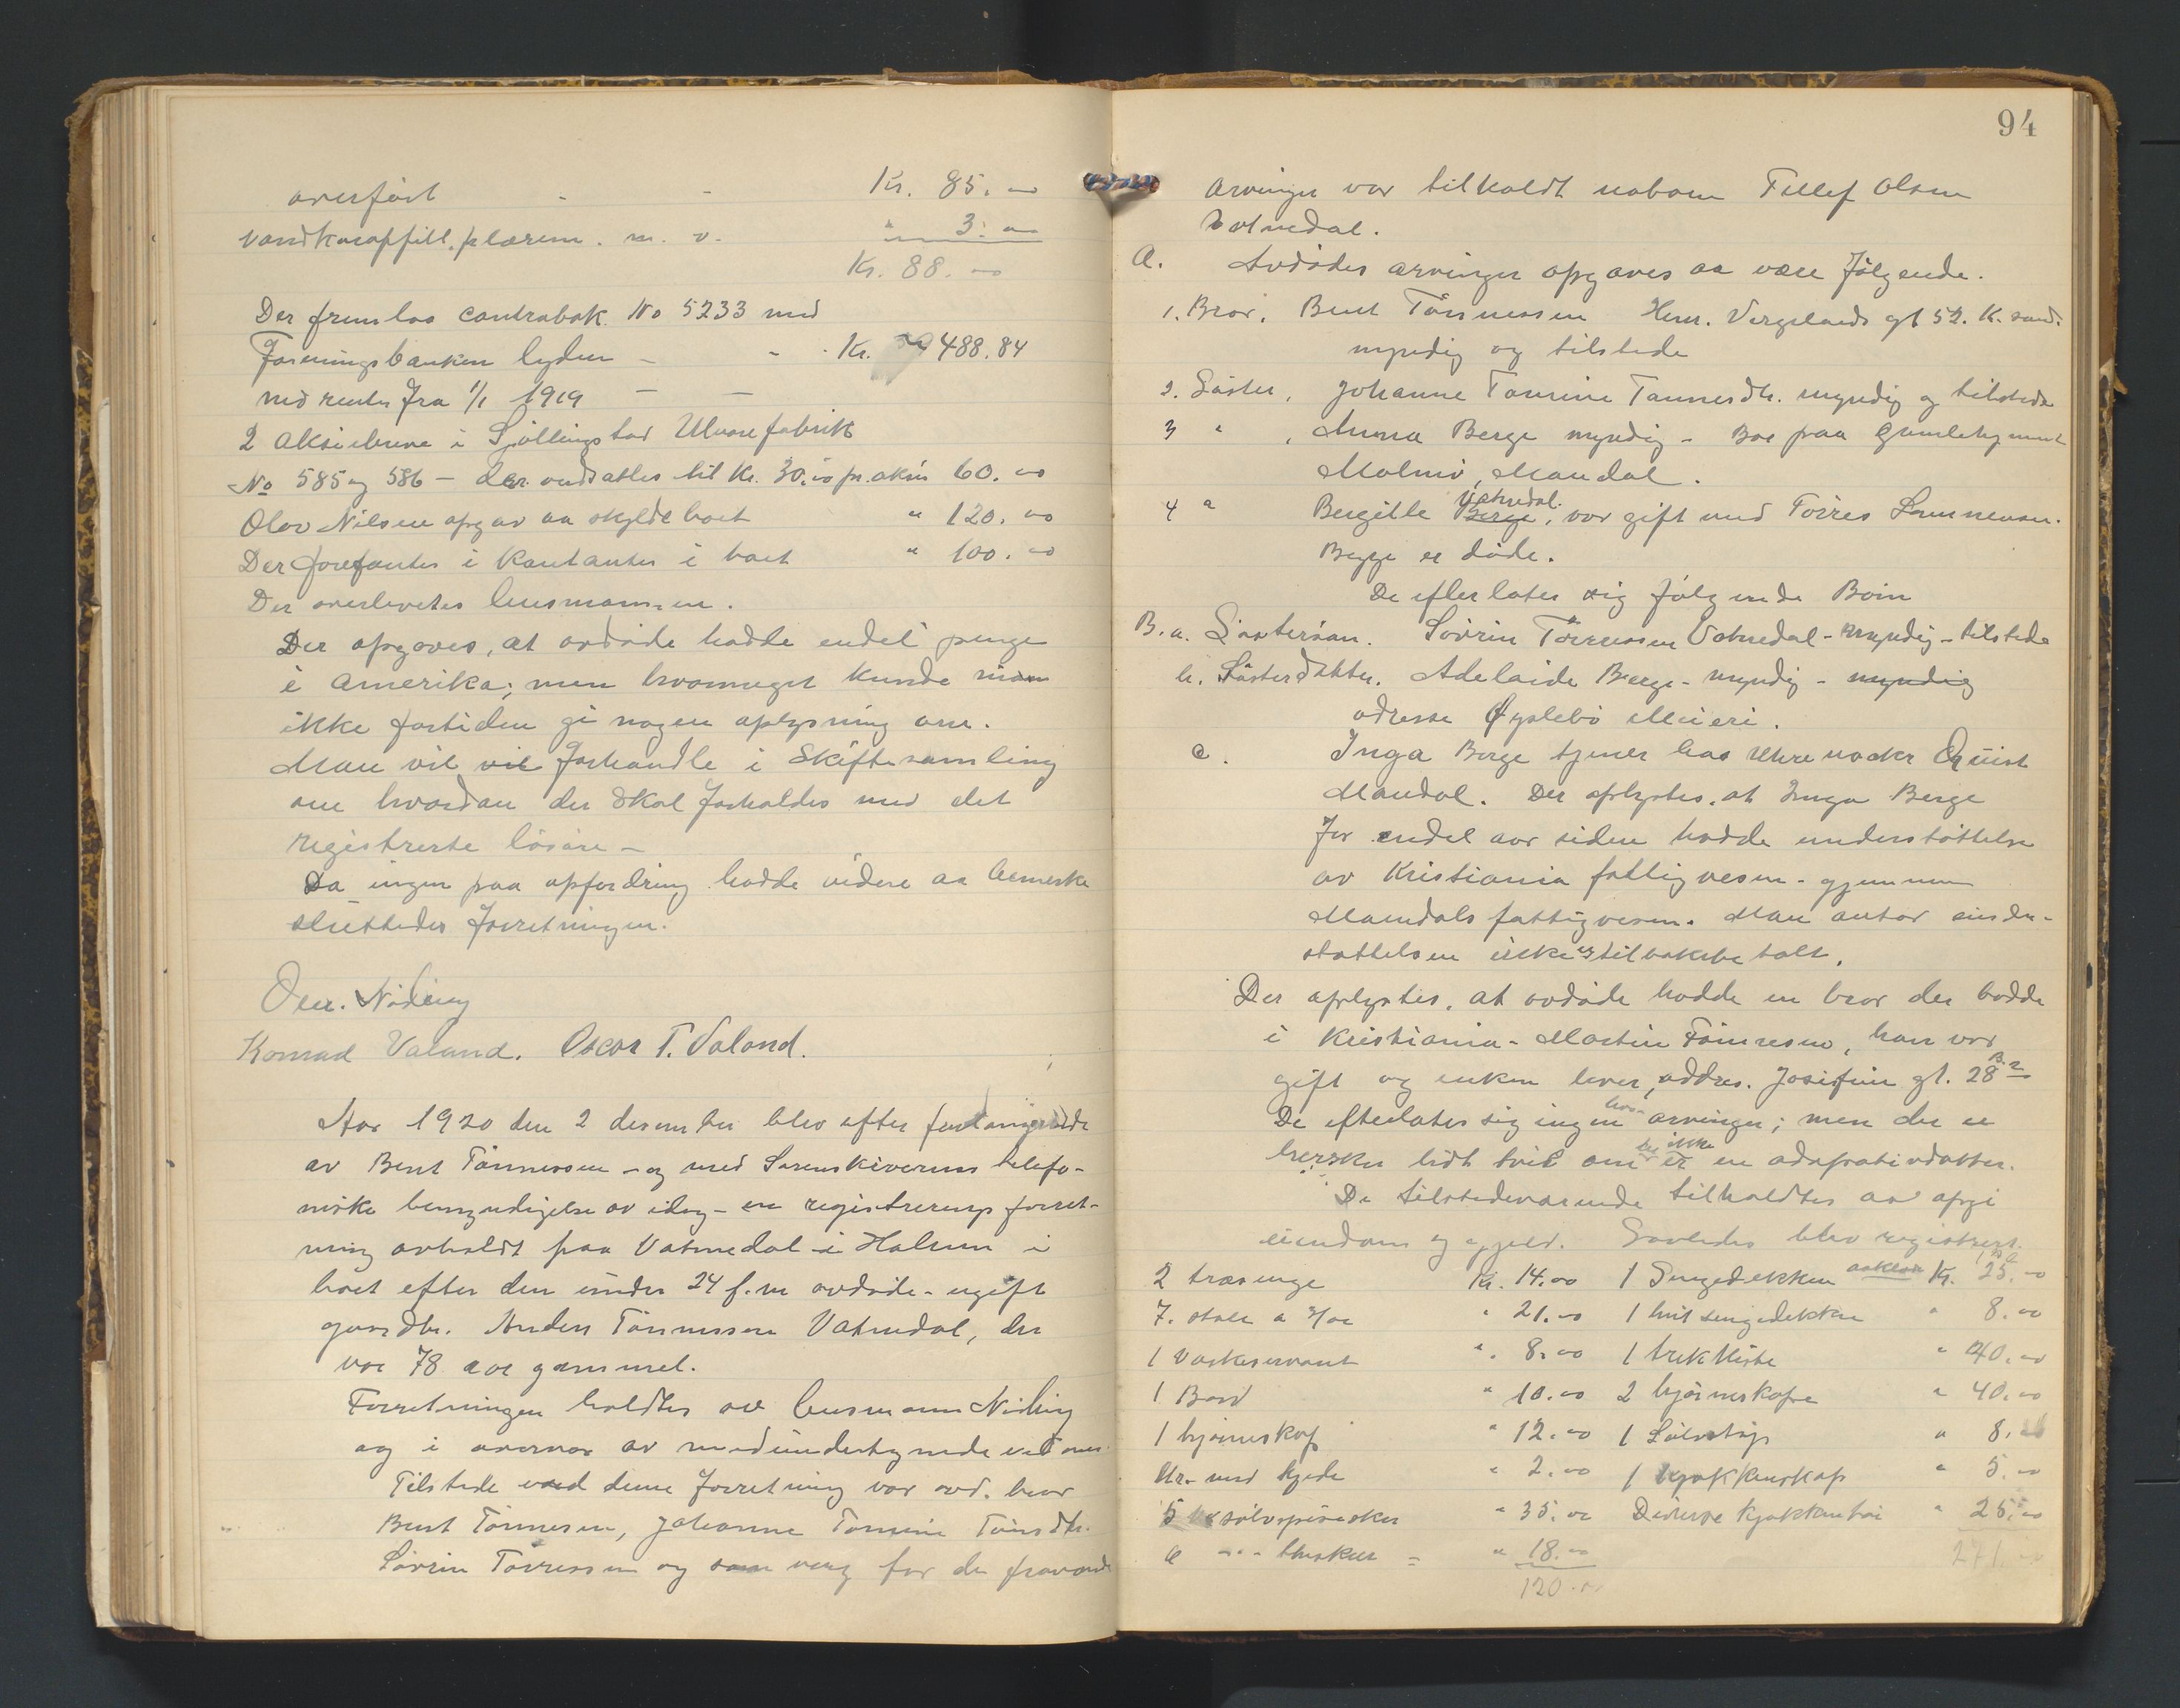 overført - - Kr. 85.00
" 3.00
m. v.
Kr. 88.00
Der fremlas contrabok No 5233 med
Foreningsbanken lydende - - Kr. 488.84
med renter fra 1/1 1919 - -
2 aksiebreve i Sjøllingstad Uldvarefabrik
No 585 og 586 - der ansattes til Kr. 30.00 pr. aksie 60.00
Olav Nilsen opgav aa skylde boet " 120.00
Der forefantes i kontanter i boet " 100.00
Der overlevertes lensmannen.
Der opgaves, at avdøde hadde endel penge
i Amerika; men hvormeget kunde man
ikke fortiden gi nogen oplysning om.
Man vil vil forhandle i Skiftesamling
om hvordan der skal forholdes med det
registrerte løsøre -
Da ingen paa opfordring hadde videre aa bemerke
sluttedes forretningen.
Nøding
Konrad Valand. Oscar T. Valand.
Aar 1920 den 2 desember blev efter forlangende
av Bent Tønnessen - og med Sorenskriverens telefo-
niske bemyndigelse av idag - en registrerings forret-
ning avholdt paa Vatnedal i Halsum i
boet efter den under 24 f. m avdøde - ugift
gaardbr. Anders Tønnessen Vatnedal, der
var 78 aar gammel.
Forretningen holdtes av lensmann Nøding
og i overvær av medundertegnede vidner.
Tilstede ved denne forretning var avd. bror
Bent Tønnesen, Johanne Tomine Tønsdtr.
Sørrin Tørressen og som verg for de fraværende
94
arvinger var tilkaldt naboen Tellef Olsen
Vatnedal.
A. Avdødes arvinger opgaves aa være følgende.
1. Bror, Bent Tønnessen Henr. Vergelands gt 52. K. sand.
myndig og tilstede
2. Søster, Johanne Tomine Tønnesdtr. myndig og tilstede
3 " , Anna Berge myndig - Bor paa
Malmø, Mandal.
4 " Bergitte Berge Vatnedal, var gift med Tørres Sønnensen.
Begge er døde.
De efterlater sig følgende Børn
B. a. Søstersøn. Sørrin Tørressen Vatnedal - myndig - tilstede
b. Søsterdatter. Adelaide Berge - myndig - myndig
adresse Øyslebø Meieri.
c. Inga Berge tjener hos Uhrmaker Quist
Mandal. Der oplystes, at Inga Berge
for endel aar siden hadde understøttelse
av Kristiania fattigvesen - gjennem
Mandals fattigvesen. Man antar under-
støttelsen ikke er tilbakebetalt.
Der oplystes, at avdøde hadde en bror der bodde
i Kristiania - Martin Tønnesen, han var
gift og enken lever, addres. Josefine gt. 28 B. 2
De efterlater sig ingen livs-arvinger; men der er
hersker lidt tvil om der ikke er en adoptivdatter.
De tilstedeværende tilholdtes aa opgi
eiendom og gjeld. Saaledes blev registrert.
2 træsenge Kr. 14.00 1 Sengedekken aaklæde Kr. 25.00
7. stole a 3/00 " 21.00 1 hvit sengedekken " 8.00
1 Vaskeservant " 8.00 1 trekkiste " 40.00
1 Bord " 10.00 2 hjørneskape " 40.00
1 hjørneskap " 12.00 1 Sølvstøp " 8.00
Ur - med kjede " 2.00 1 kjøkkenskap " 5.00
5 sølvspiseskeer " 35.00 Diverse kjøkkentøi " 25.00
6 - " - theskeer - " 18.00 271.00
120.00